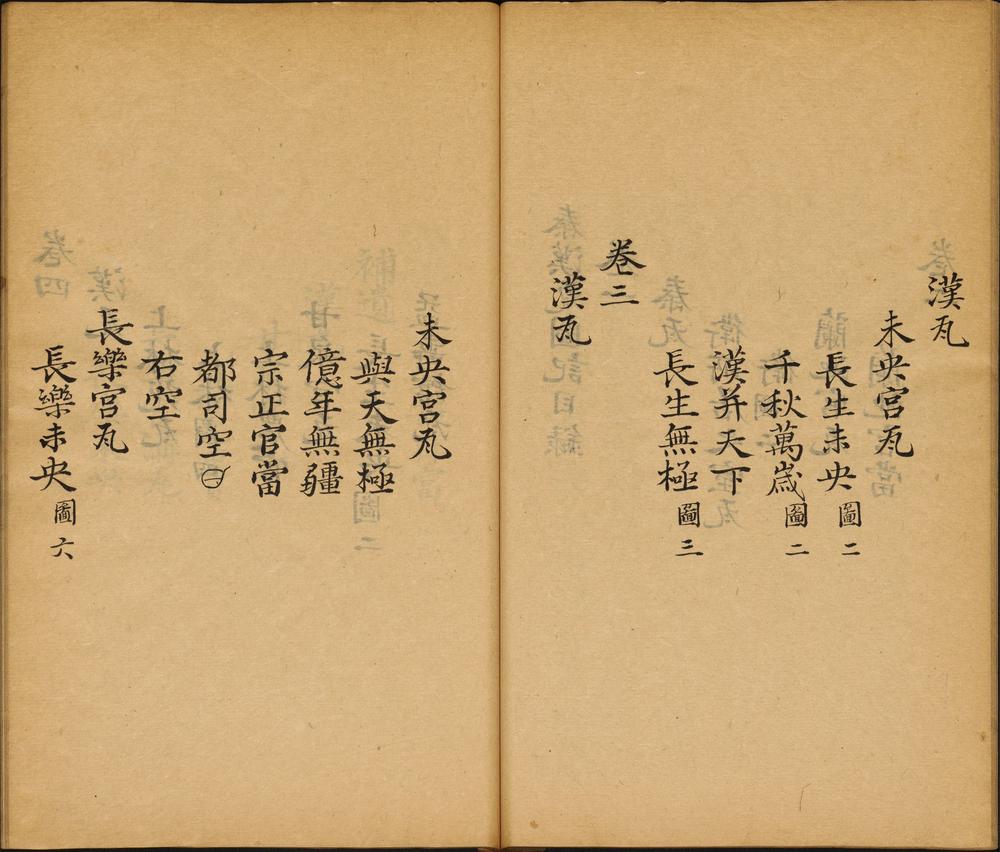 漢瓦
未央宮瓦
長生未央 圖二
千秋萬歲 圖二
漢并天下
長生無極 圖三
卷三
漢瓦
未央宮瓦
與天無極
億年無疆
宗正官當
都司空
右空
長樂宮瓦
長樂未央 圖六